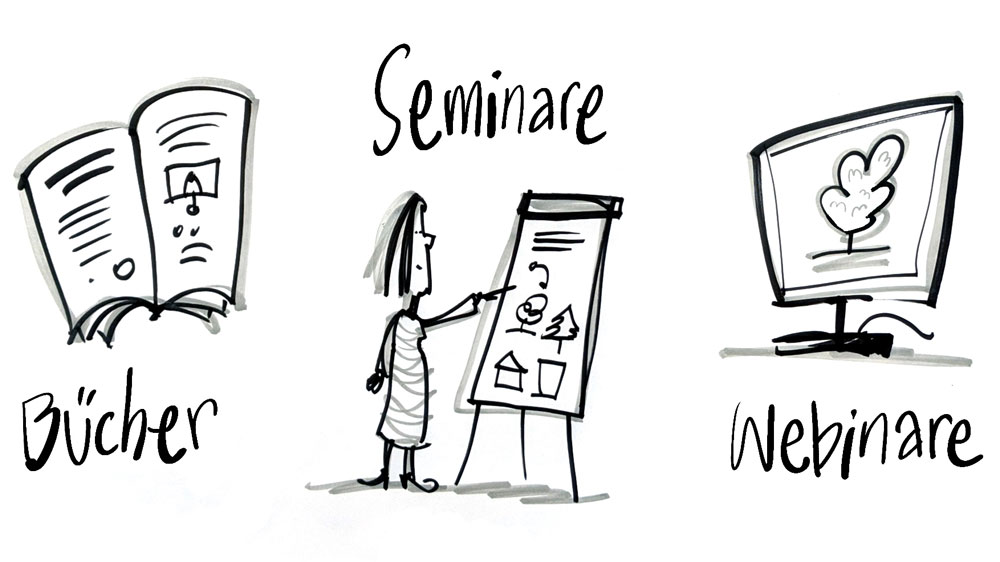 Seminare
Bücher
Webinare